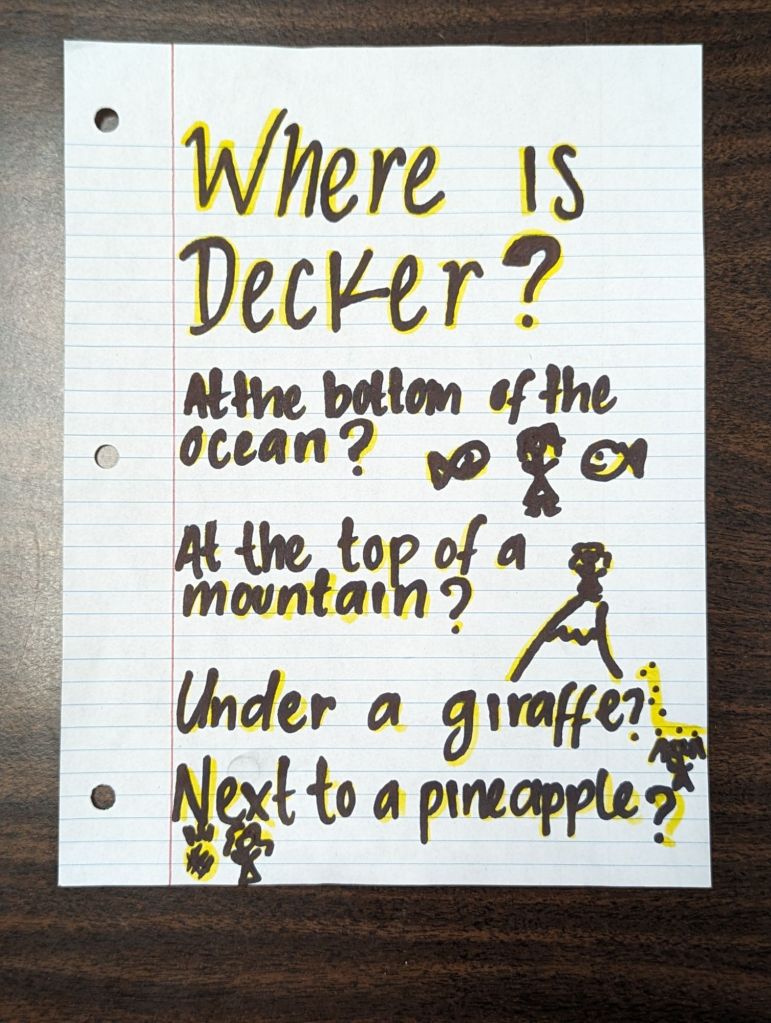 Where is
Decker?
At the bottom of the
ocean?
At the top of a
mountain?
Under a giraffe?
Next to a pineapple?